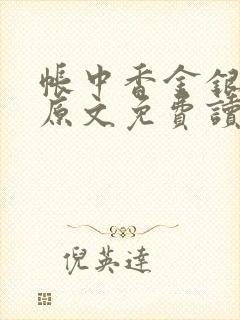 帳中香金銀
原文免費讀
倪英達